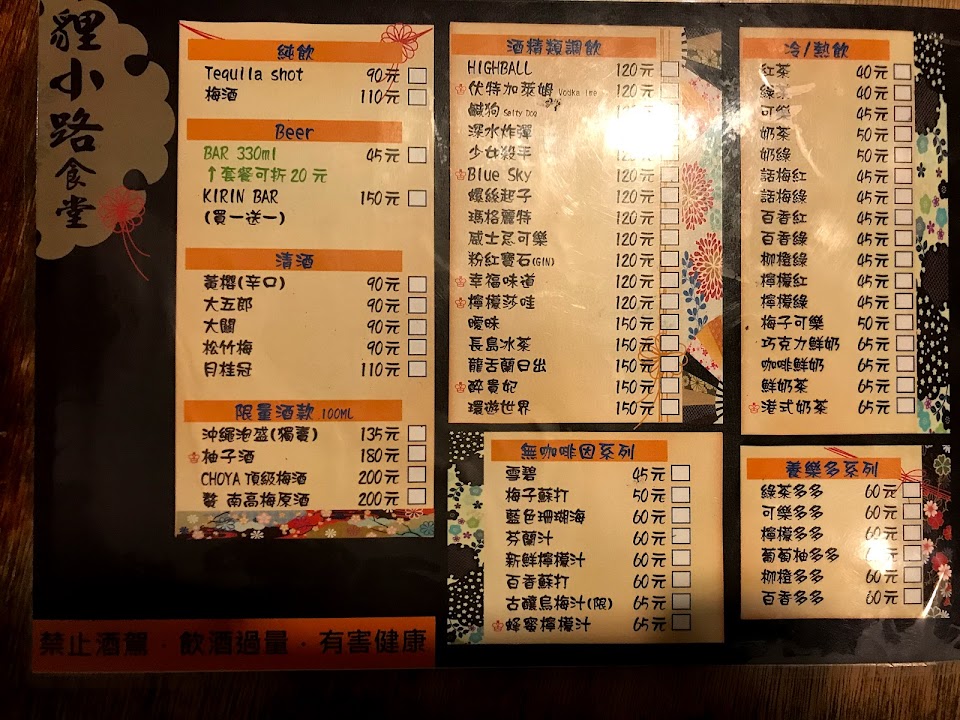 貍小路食堂
純飲
Tequila shot 90元
梅酒 110元
Beer
BAR 330ml 45元
↑套餐可折20元
KIRIN BAR 150元
(買一送一)
清酒
黃櫻(辛口) 90元
大五郎 90元
大關 90元
松竹梅 90元
月桂冠 110元
限量酒款 100ML
沖繩泡盛(獨賣) 135元
柚子酒 180元
CHOYA 頂級梅酒 200元
南高梅原酒 200元
禁止酒駕．飲酒過量．有害健康
酒精類調飲
HIGHBALL 120元
伏特加萊姆 Vodka Lime 120元
鹹狗 Salty Dog 120元
深水炸彈
少女殺手
Blue Sky 120元
螺絲起子 120元
瑪格麗特 120元
威士忌可樂 120元
粉紅寶石(GIN) 120元
幸福味道 120元
檸檬莎哇 120元
曖昧 150元
長島冰茶 150元
龍舌蘭日出 150元
醉貴妃 150元
環遊世界 150元
無咖啡因系列
雪碧 45元
梅子蘇打 50元
藍色珊瑚海 60元
芬蘭汁 60元
新鮮檸檬汁 60元
百香蘇打 60元
古釀烏梅汁(限) 65元
蜂蜜檸檬汁 65元
冷/熱飲
紅茶 40元
綠茶 40元
可樂 45元
奶茶 50元
奶綠 50元
話梅紅 45元
話梅綠 45元
百香紅 45元
百香綠 45元
柳橙綠 45元
檸檬紅 45元
檸檬綠 45元
梅子可樂 50元
巧克力鮮奶 65元
咖啡鮮奶 65元
鮮奶茶 65元
港式奶茶 65元
養樂多系列
綠茶多多 60元
可樂多多 60元
檸檬多多 60元
葡萄柚多多 60元
柳橙多多 60元
百香多多 60元